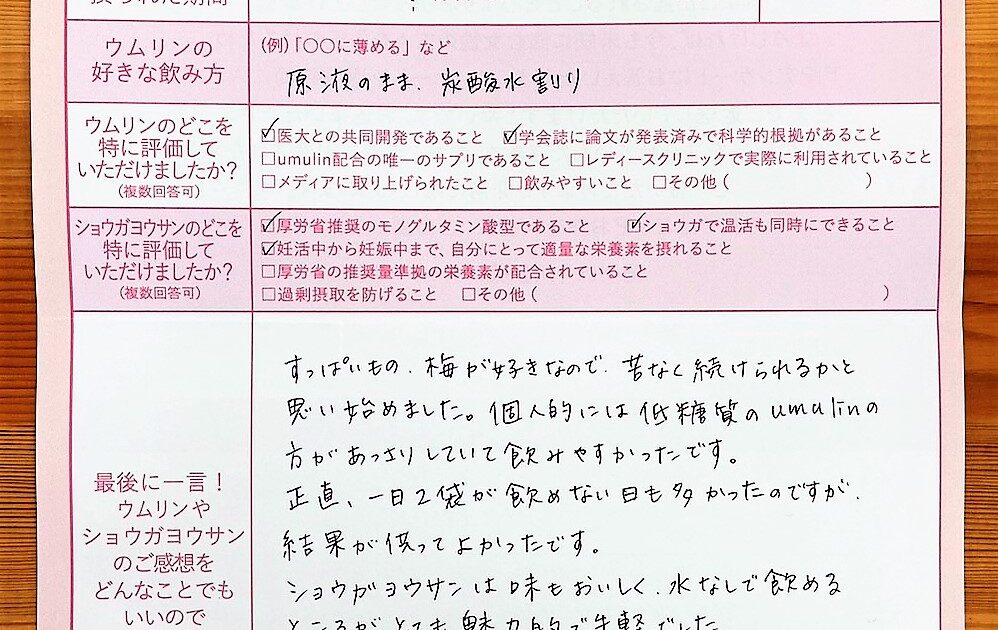 摂られた期間
ウムリンの
好きな飲み方
(例)「〇〇に薄める」など
原液のまま、炭酸水割り
ウムリンのどこを
特に評価して
いただけましたか？
(複数回答可)
☑医大との共同開発であること ☑学会誌に論文が発表済みで科学的根拠があること
□umulin配合の唯一のサプリであること □レディースクリニックで実際に利用されていること
□メディアに取り上げられたこと □飲みやすいこと □その他( )
ショウガヨウサンのどこを
特に評価して
いただけましたか？
(複数回答可)
☑厚労省推奨のモノグルタミン酸型であること ☑ショウガで温活も同時にできること
☑妊活中から妊娠中まで、自分にとって適量な栄養素を摂れること
□厚労省の推奨量準拠の栄養素が配合されていること
□過剰摂取を防げること □その他( )
最後に一言！
ウムリンや
ショウガヨウサン
のご感想を
どんなことでも
いいので
すっぱいもの、梅が好きなので、苦なく続けられるかと
思い始めました。個人的には低糖質のumulinの
方があっさりしていて飲みやすかったです。
正直、一日2袋が飲めない日も多かったのですが、
結果が伴ってよかったです。
ショウガヨウサンは味もおいしく、水なしで飲める
ところがとても魅力的で手軽でした